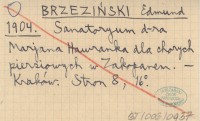 BRZEZIŃSKI Edmund
1904. Sanatoryum d-ra
Marjana Hawranka dla chorych
piersiowych w Zakopanem. —
Kraków. Stron 8, 16°.